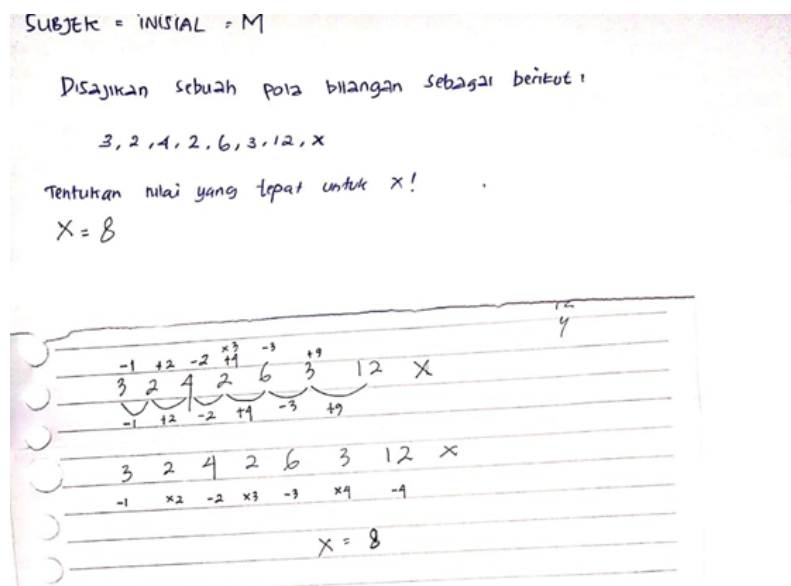 SUBJEK = INISIAL = M
Disajikan sebuah pola bilangan sebagai berikut :
3, 2, 4, 2, 6, 3, 12, x
Tentukan nilai yang tepat untuk x!
X = 8
12
y
x3
-1 +2 -2 +4 -3 +9
3 2 4 2 6 3 12 X
-1 +2 -2 +4 -3 +9
3 2 4 2 6 3 12 x
-1 x2 -2 x3 -3 x4 -4
X = 8